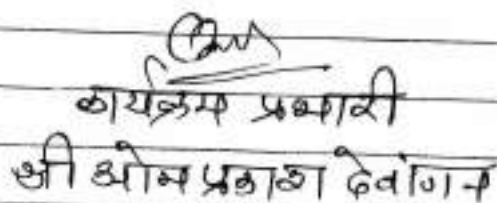 कार्यक्रम प्रभारी
श्री ओम प्रकाश देवांगन